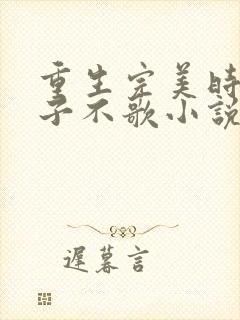 重生完美時
子不歌小説
遲暮言